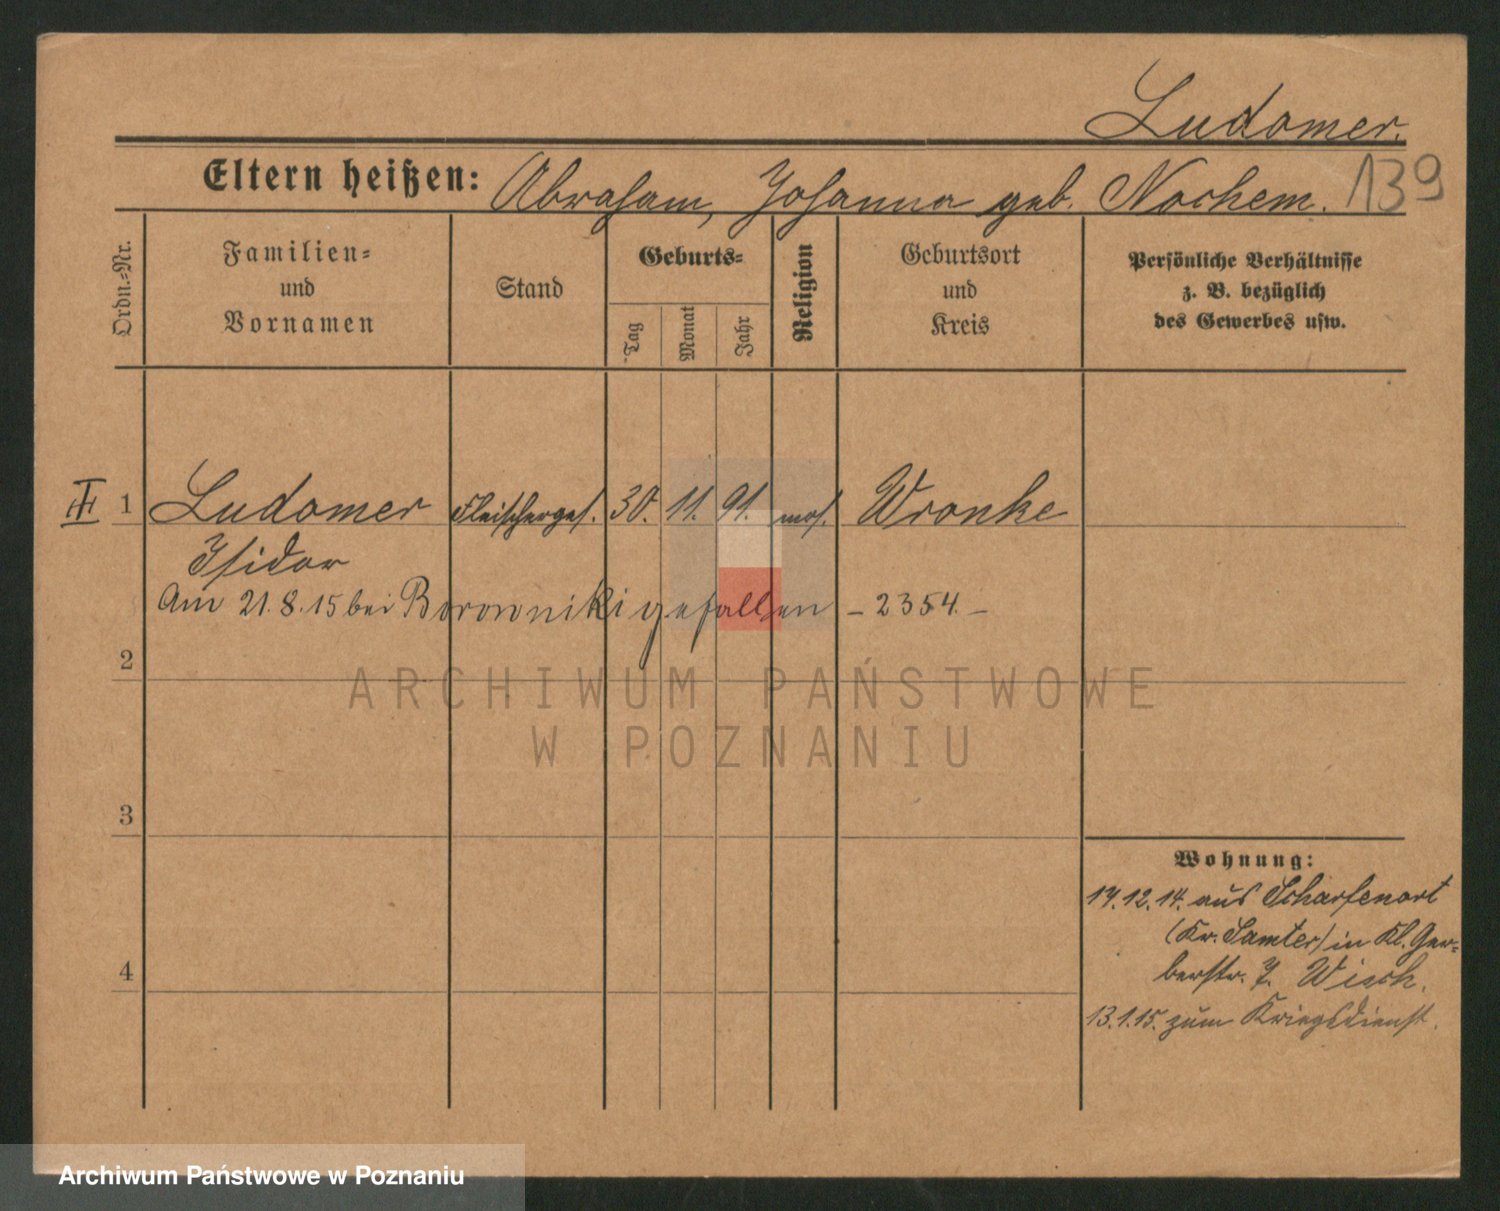 Ludomer.
Eltern heißen: Abraham, Johanna geb. Nochem. 139
Ordn.-Nr.
Familien- und Vornamen
Stand
Geburts-
Tag
Monat
Jahr
Religion
Geburtsort und Kreis
Persönliche Verhältnisse
z. B. bezüglich
des Gewerbes usw.
III 1 Ludomer Fleischerges. 30. 11. 91. mos. Wronke
Isidor
Am 21.8.15 bei Borowniki gefallen – 2354. –
2
ARCHIWUM PAŃSTWOWE
W POZNANIU
3
Wohnung:
17.12.14. aus Scharfenort
(Kr. Samter) in Kl. Ger-
berstr. 7. Wisch.
13.1.15. zum Kriegsdienst.
4
Archiwum Państwowe w Poznaniu